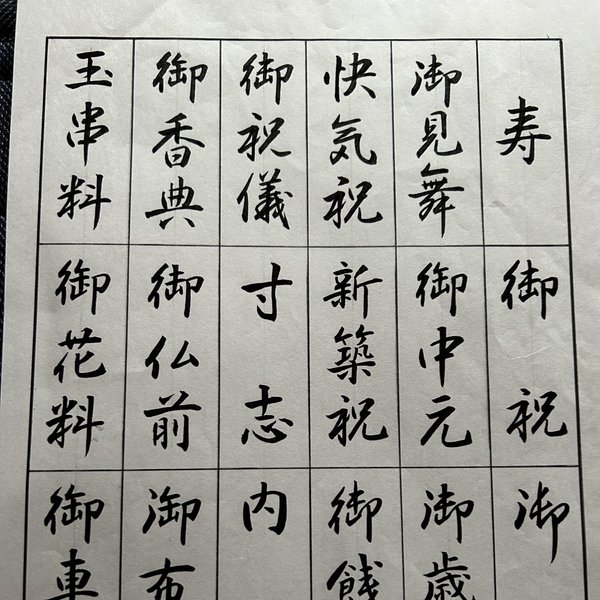 寿
御見舞
快気祝
御祝儀
御香典
玉串料
御祝
御中元
新築祝
寸志
御仏前
御花料
御
御歳
御餞
内
御布
御車